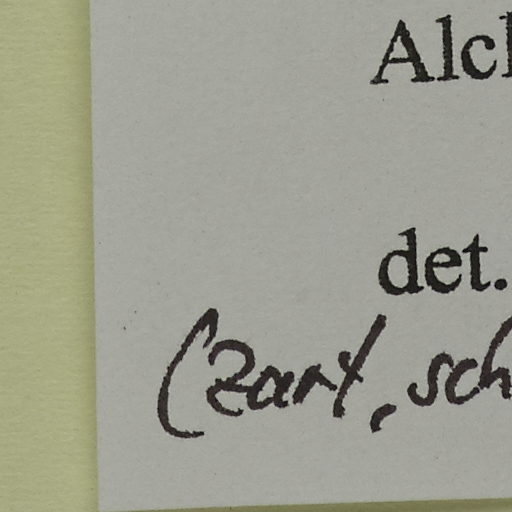 Alcl
det.
(zart, sch